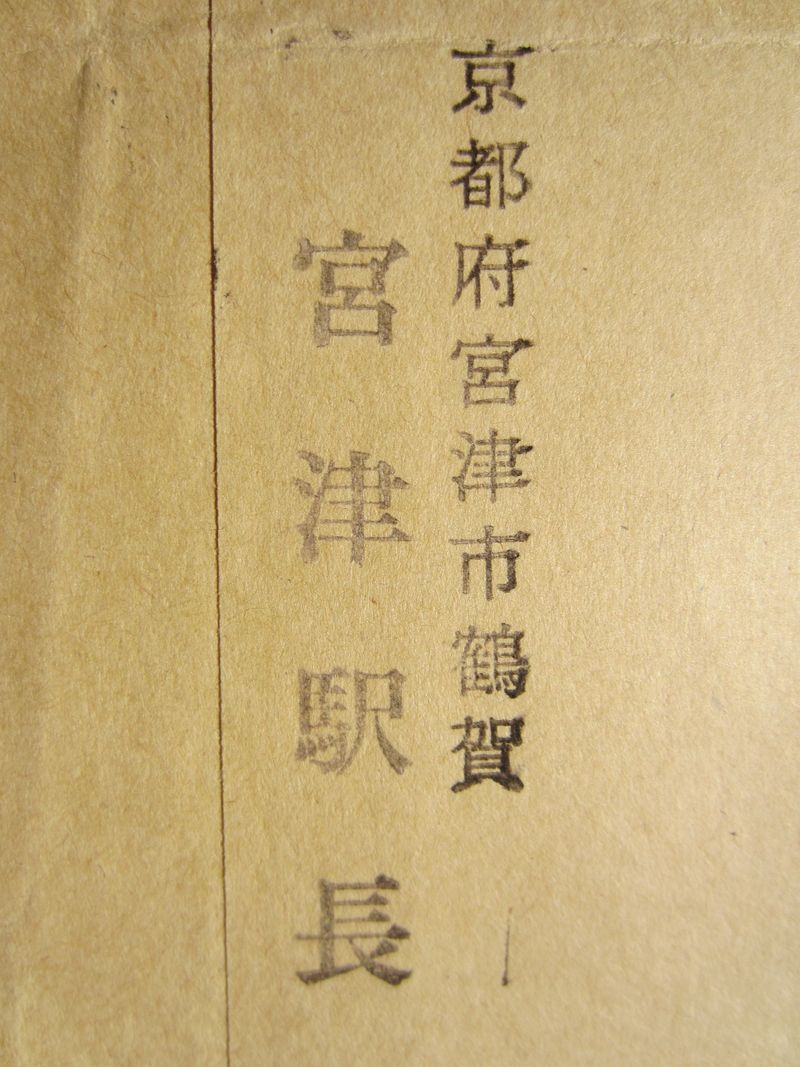 京都府宮津市鶴賀
宮津駅長